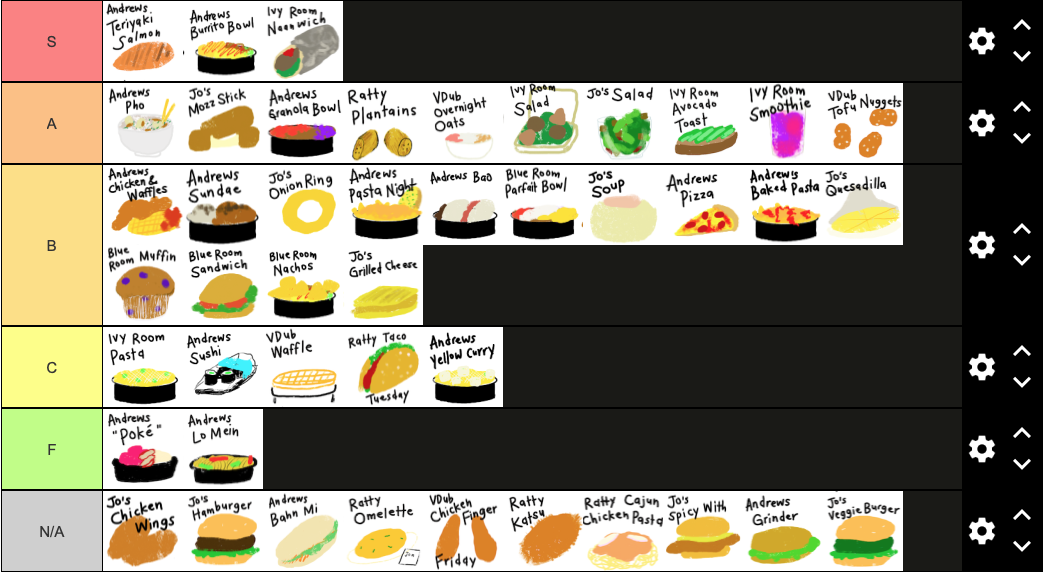 S
Andrews
Teriyaki
Salmon
Andrews
Burrito Bowl
Ivy Room
Naanwich
A
Andrews
Pho
Jo's
Mozz Stick
Andrews
Granola Bowl
Ratty
Plantains
VDub
Overnight
Oats
Ivy Room
Salad
Jo's Salad
Ivy Room
Avocado
Toast
Ivy Room
Smoothie
VDub
Tofu Nuggets
B
Andrews
Chicken &
Waffles
Andrews
Sundae
Jo's
Onion Ring
Andrews
Pasta Night
Andrews Bao
Blue Room
Parfait Bowl
Jo's
Soup
Andrews
Pizza
Andrew's
Baked Pasta
Jo's
Quesadilla
Blue
Room Muffin
Blue Room
Sandwich
Blue Room
Nachos
Jo's
Grilled Cheese
C
Ivy Room
Pasta
Andrews
Sushi
VDub
Waffle
Ratty Taco
Tuesday
Andrews
Yellow Curry
F
Andrews
"Poké"
Andrews
Lo Mein
N/A
Jo's
Chicken
Wings
Jo's
Hamburger
Andrews
Bahn Mi
Ratty
Omelette
VDub
Chicken Finger
Friday
Ratty
Katsu
Ratty Cajun
Chicken Pasta
Jo's
Spicy With
Andrews
Grinder
Jo's
Veggie Burger